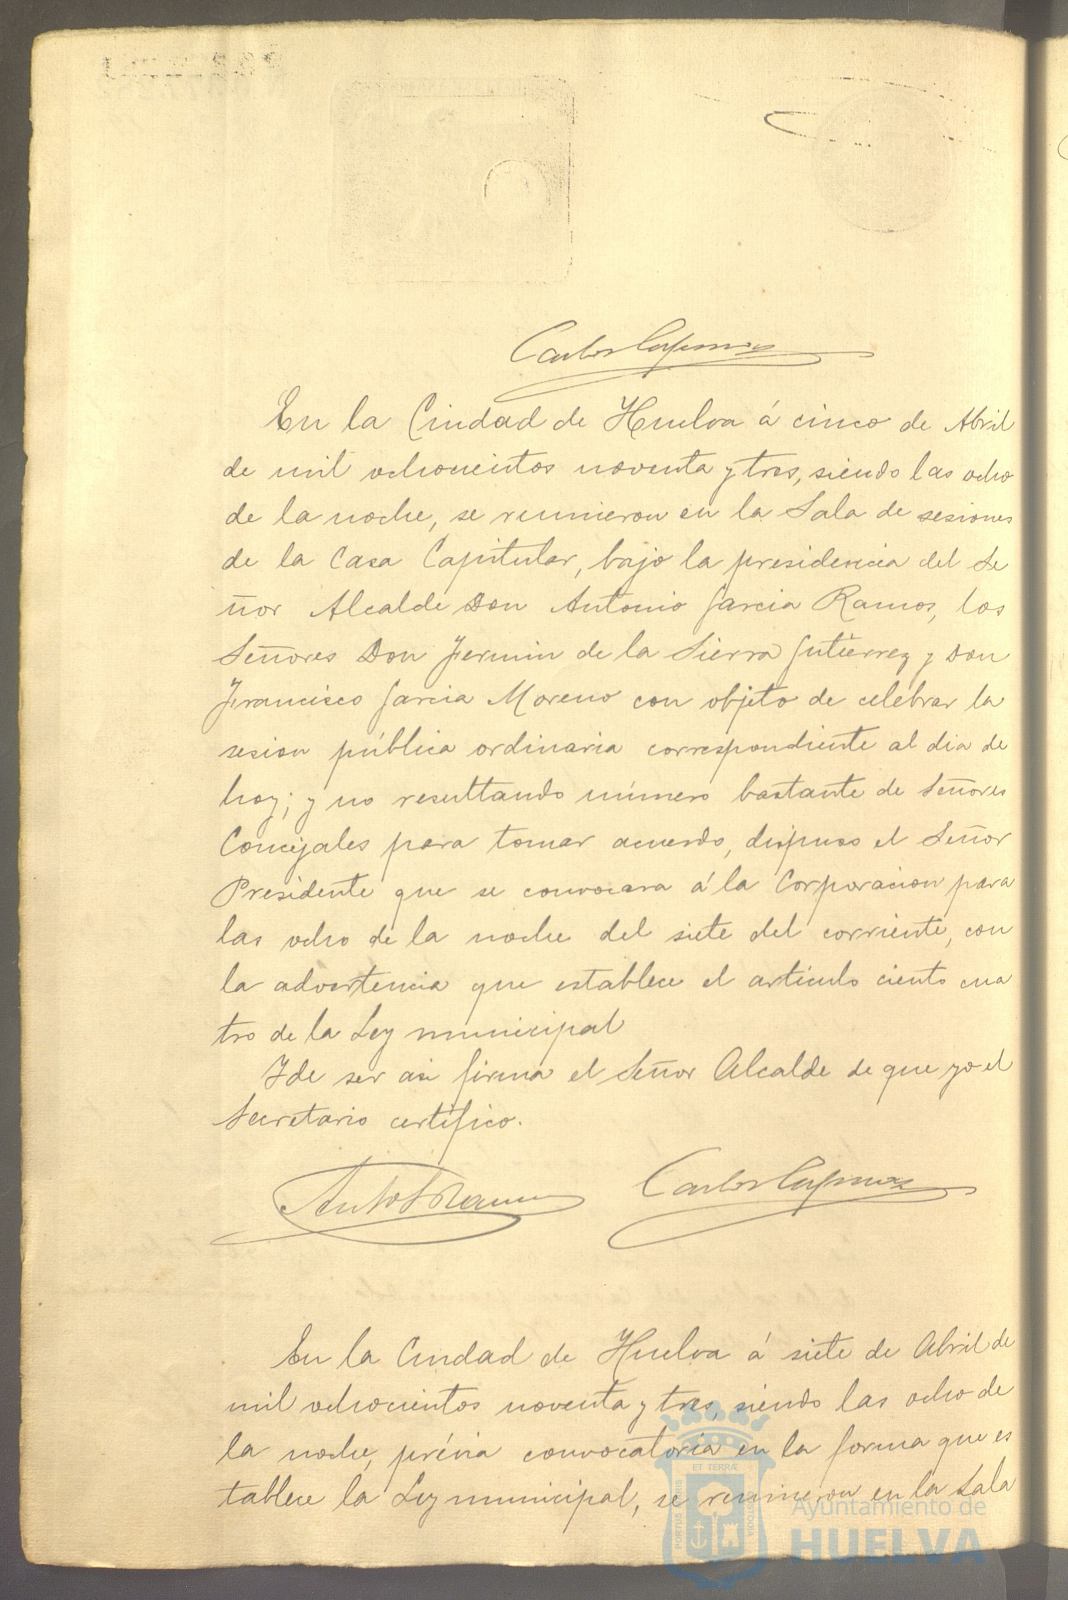 Carlos
En la Ciudad de Huelva á cinco de Abril
de mil ochocientos noventa y tres, siendo las ocho
de la noche, se reunieron en la Sala de sesiones
de la Casa Capitular, bajo la presidencia del Se
ñor Alcalde Don Antonio Garcia Ramos, los
Señores Don Fermin de la Sierra Gutierrez y Don
Francisco Garcia Moreno con objeto de celebrar la
sesion pública ordinaria correspondiente al dia de
hoy; y no resultando número bastante de Señores
Concejales para tomar acuerdo, dispuso el Señor
Presidente que se convocara á la Corporacion para
las ocho de la noche del siete del corriente, con
la advertencia que establece el articulo ciento cua
tro de la Ley municipal
Y de ser asi firma el Señor Alcalde de que yo el
Secretario certifico.
Carlos
En la Ciudad de Huelva á siete de Abril de
mil ochocientos noventa y tres, siendo las ocho de
la noche, prévia convocatoria en la forma que es
tablece la Ley municipal, se reunieron en la Sala
ET TERRÆ
PORTUS MARIS
CUSTODIA
Ayuntamiento de
HUELVA